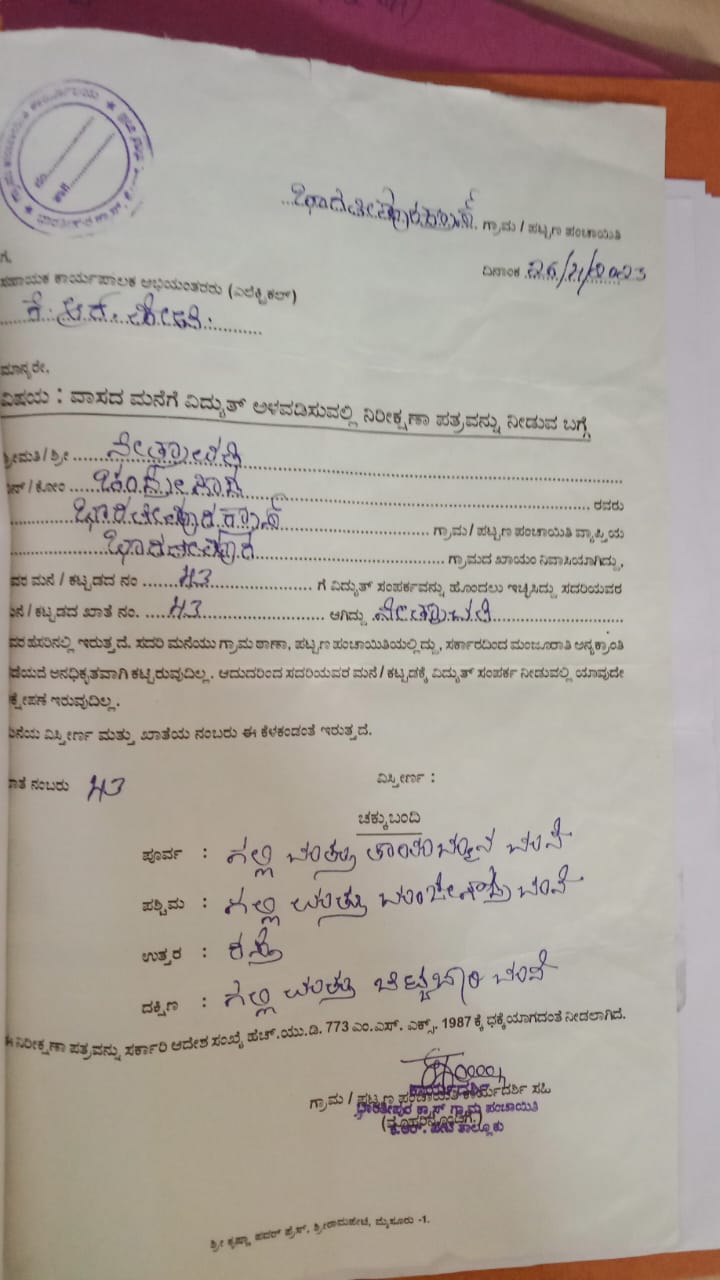 ಭಾರತೀಪುರ ಕ್ರಾಸ್. ಗ್ರಾಮ / ಪಟ್ಟಣ ಪಂಚಾಯಿತಿ
ದಿನಾಂಕ
ಗೆ,
ಸಹಾಯಕ ಕಾರ್ಯಪಾಲಕ ಅಭಿಯಂತರರು (ಎಲೆಕ್ಟ್ರಿಕಲ್)
ಕೆ. ಆರ್. ಪೇಟೆ.
ಮಾನ್ಯರೇ,
ವಿಷಯ : ವಾಸದ ಮನೆಗೆ ವಿದ್ಯುತ್ ಅಳವಡಿಸುವಲ್ಲಿ ನಿರೀಕ್ಷಣಾ ಪತ್ರವನ್ನು ನೀಡುವ ಬಗ್ಗೆ
ಶ್ರೀಮತಿ / ಶ್ರೀ ನೇತ್ರಾವತಿ
ನ್ / ಕೋಂ ರವರು
ಭಾರತೀಪುರ ಕ್ರಾಸ್ ಗ್ರಾಮ / ಪಟ್ಟಣ ಪಂಚಾಯಿತಿ ವ್ಯಾಪ್ತಿಯ
ಭಾರತೀಪುರ ಗ್ರಾಮದ ಖಾಯಂ ನಿವಾಸಿಯಾಗಿದ್ದು,
ವರ ಮನೆ / ಕಟ್ಟಡದ ನಂ 43 ಗೆ ವಿದ್ಯುತ್ ಸಂಪರ್ಕವನ್ನು ಹೊಂದಲು ಇಚ್ಛಿಸಿದ್ದು ಸದರಿಯವರ
ನೆ / ಕಟ್ಟಡದ ಖಾತೆ ನಂ. 43 ಆಗಿದ್ದು ನೇತ್ರಾವತಿ
ವರ ಹೆಸರಿನಲ್ಲಿ ಇರುತ್ತದೆ. ಸದರಿ ಮನೆಯು ಗ್ರಾಮ ಠಾಣಾ, ಪಟ್ಟಣ ಪಂಚಾಯಿತಿಯಲ್ಲಿದ್ದು, ಸರ್ಕಾರದಿಂದ ಮಂಜೂರಾತಿ ಅನ್ಯಕ್ರಾಂತಿ
ಡೆಯದೆ ಅನಧಿಕೃತವಾಗಿ ಕಟ್ಟಿರುವುದಿಲ್ಲ. ಆದುದರಿಂದ ಸದರಿಯವರ ಮನೆ / ಕಟ್ಟಡಕ್ಕೆ ವಿದ್ಯುತ್ ಸಂಪರ್ಕ ನೀಡುವಲ್ಲಿ ಯಾವುದೇ
ಕ್ಷೇಪಣೆ ಇರುವುದಿಲ್ಲ.
ನೆಯ ವಿಸ್ತೀರ್ಣ ಮತ್ತು ಖಾತೆಯ ನಂಬರು ಈ ಕೆಳಕಂಡಂತೆ ಇರುತ್ತದೆ.
ಾತೆ ನಂಬರು 43 ವಿಸ್ತೀರ್ಣ :
ಚಕ್ಕುಬಂದಿ
ಪೂರ್ವ : ಗಲ್ಲಿ ಮತ್ತು ಮನೆ
ಪಶ್ಚಿಮ : ಗಲ್ಲಿ ಮತ್ತು ಮನೆ
ಉತ್ತರ : ರಸ್ತೆ
ದಕ್ಷಿಣ : ಗಲ್ಲಿ ಮತ್ತು ಮನೆ
ಈ ನಿರೀಕ್ಷಣಾ ಪತ್ರವನ್ನು ಸರ್ಕಾರಿ ಆದೇಶ ಸಂಖ್ಯೆ ಹೆಚ್.ಯು.ಡಿ. 773 ಎಂ.ಎಸ್. ಎಕ್ಸ್. 1987 ಕ್ಕೆ ಧಕ್ಕೆಯಾಗದಂತೆ ನೀಡಲಾಗಿದೆ.
ಗ್ರಾಮ / ಪಟ್ಟಣ ಪಂಚಾಯಿತಿ ಕಾರ್ಯದರ್ಶಿ ಸಹಿ
ಕಾರ್ಯದರ್ಶಿ
ಭಾರತೀಪುರ ಕ್ರಾಸ್ ಗ್ರಾಮ ಪಂಚಾಯಿತಿ
(ಮೊಹರಿನೊಂದಿಗೆ.)
ಕೆ.ಆರ್. ಪೇಟೆ ತಾಲ್ಲೂಕು
ಶ್ರೀ ಕೃಷ್ಣಾ ಪವರ್ ಪ್ರೆಸ್, ಶ್ರೀರಾಮಪೇಟೆ, ಮೈಸೂರು -1.